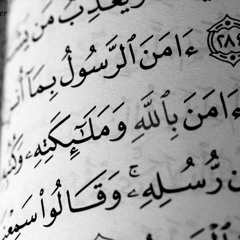 وَيُعَذِّبُ مَن يَشَ
٢٨٤ ءَامَنَ ٱلرَّسُولُ بِمَآ أُن
ءَامَنَ بِٱللَّهِ وَمَلَٰٓئِكَتِهِۦ وَكُتُ
ن رُّسُلِهِۦۚ وَقَالُوا۟ سَمِعْ